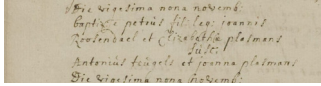 Die vigesima nona novemb:
baptizo petrus fil: leg: joannis
Roosendael et Elizabetha plasmans
susc:
Antonius teugels et joanna plasmans
Die vigesima nona novemb: